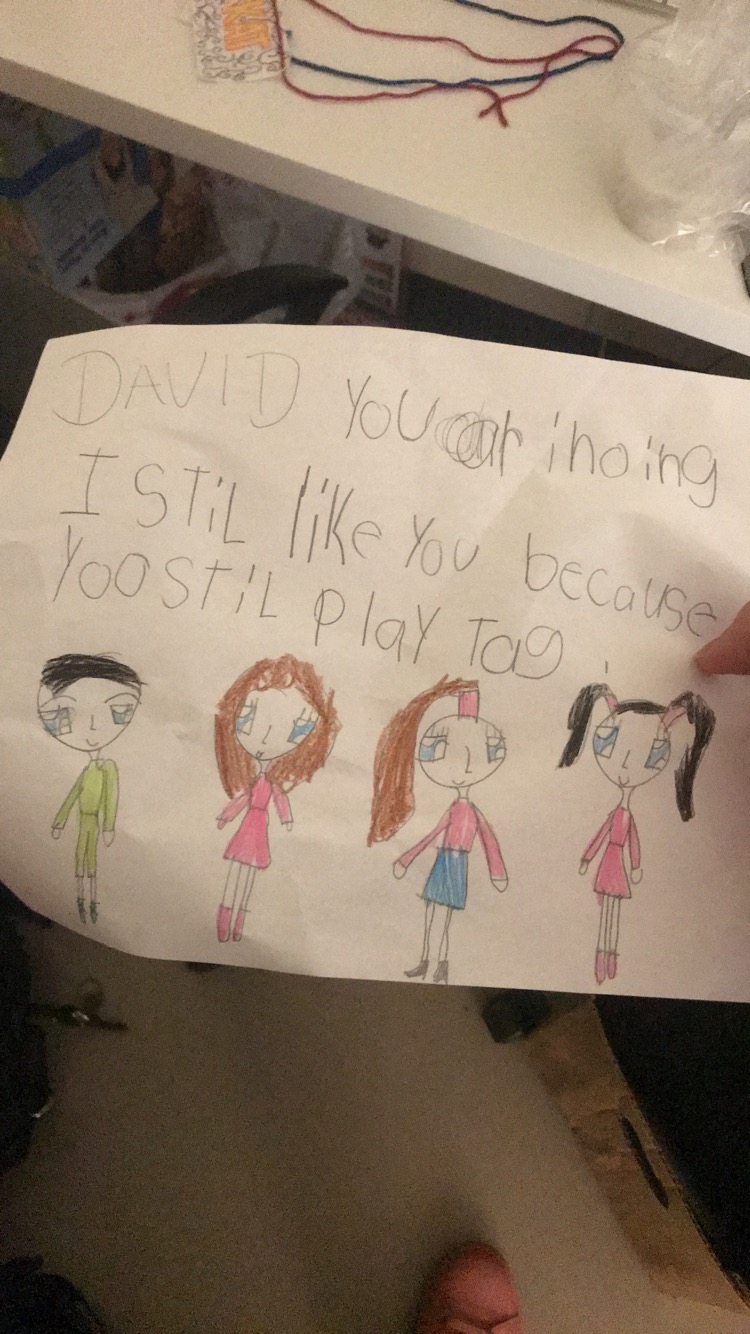 DAVID YOU ar ihoing
I STiL like You because
YOO STiL PlaY Tag